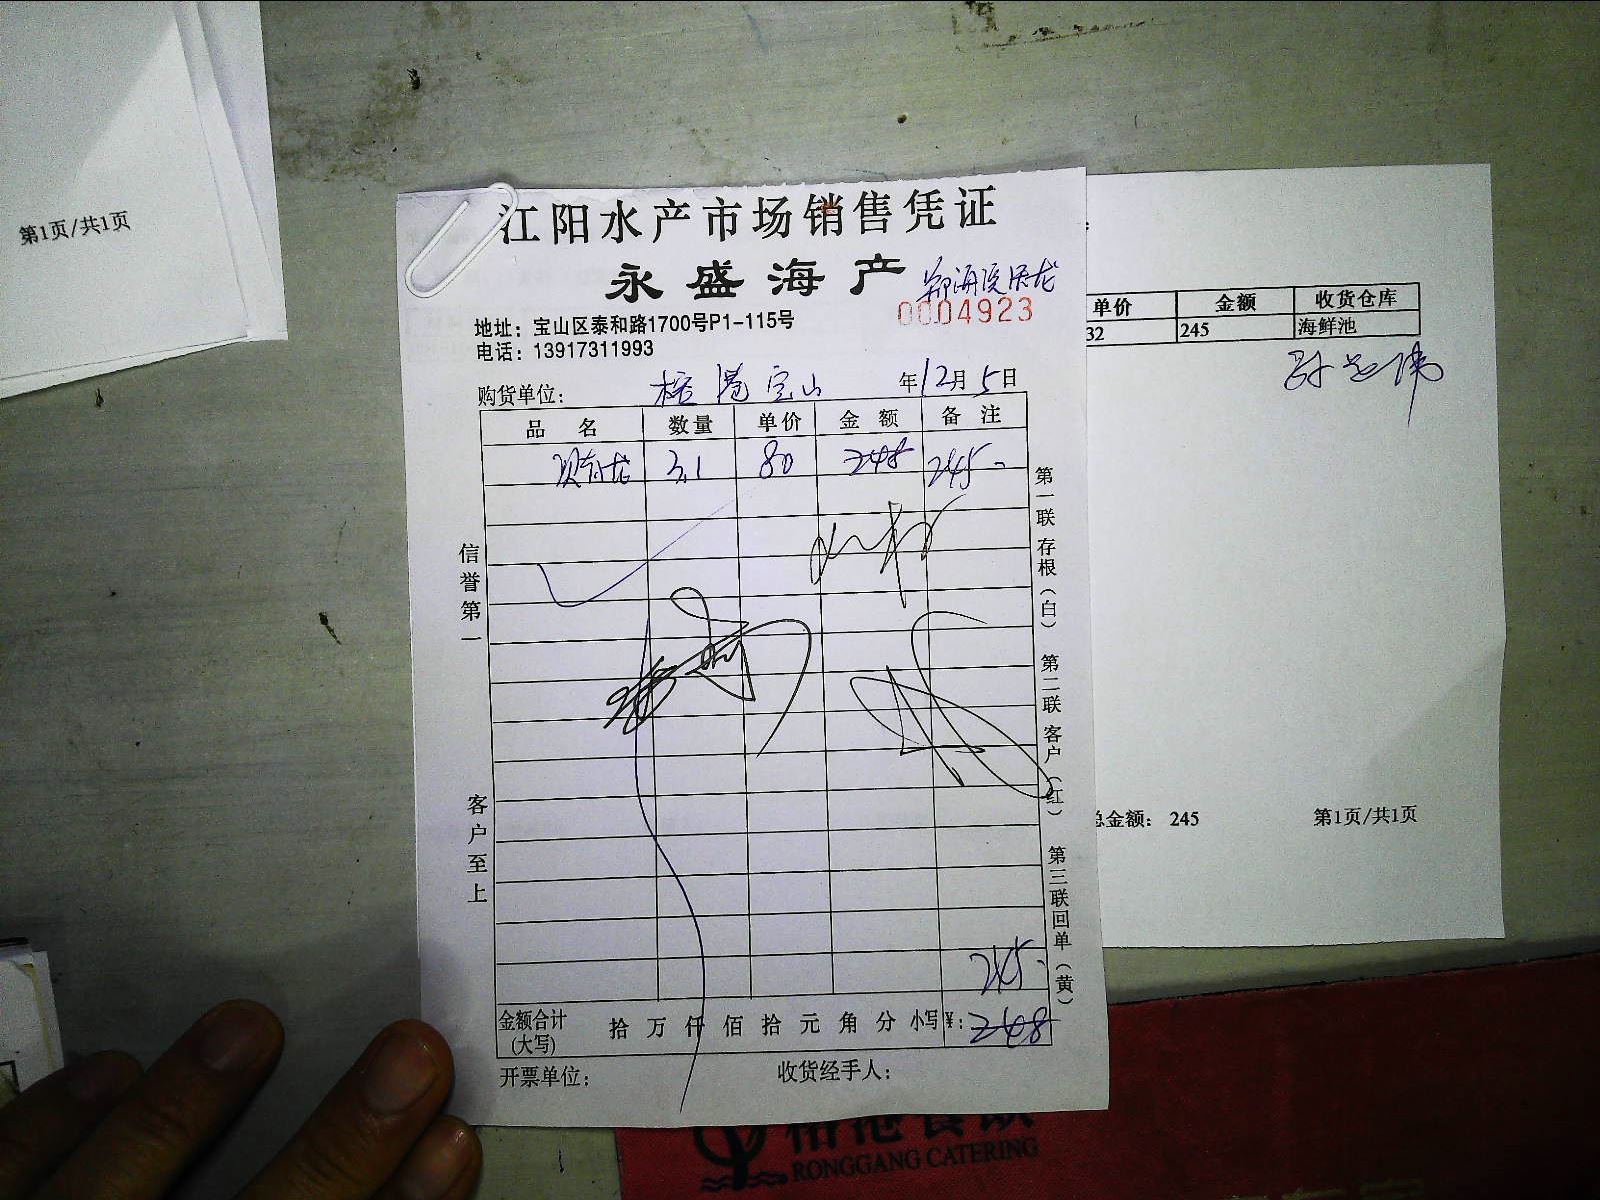 第1页/共1页
江阳水产市场销售凭证
永盛海产
0004923
地址：宝山区泰和路1700号P1-115号
电话：13917311993
购货单位： 榕港宝山 年12月5日
品名 数量 单价 金额 备注
3.1 80 248 245-
信誉第一
客户至上
第一联 存根（白） 第二联 客户（红） 第三联 回单（黄）
245-
金额合计（大写） 拾 万 仟 佰 拾 元 角 分 小写￥：248
开票单位： 收货经手人：
单价 金额 收货仓库
32 245 海鲜池
总金额： 245 第1页/共1页
榕港餐饮
RONGGANG CATERING